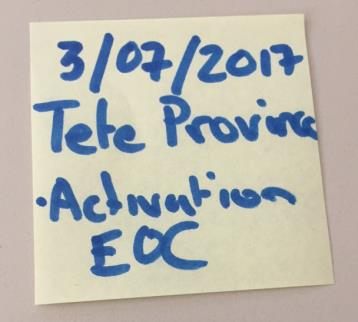 3/07/2017
Tete Provinc
·Activation
EOC